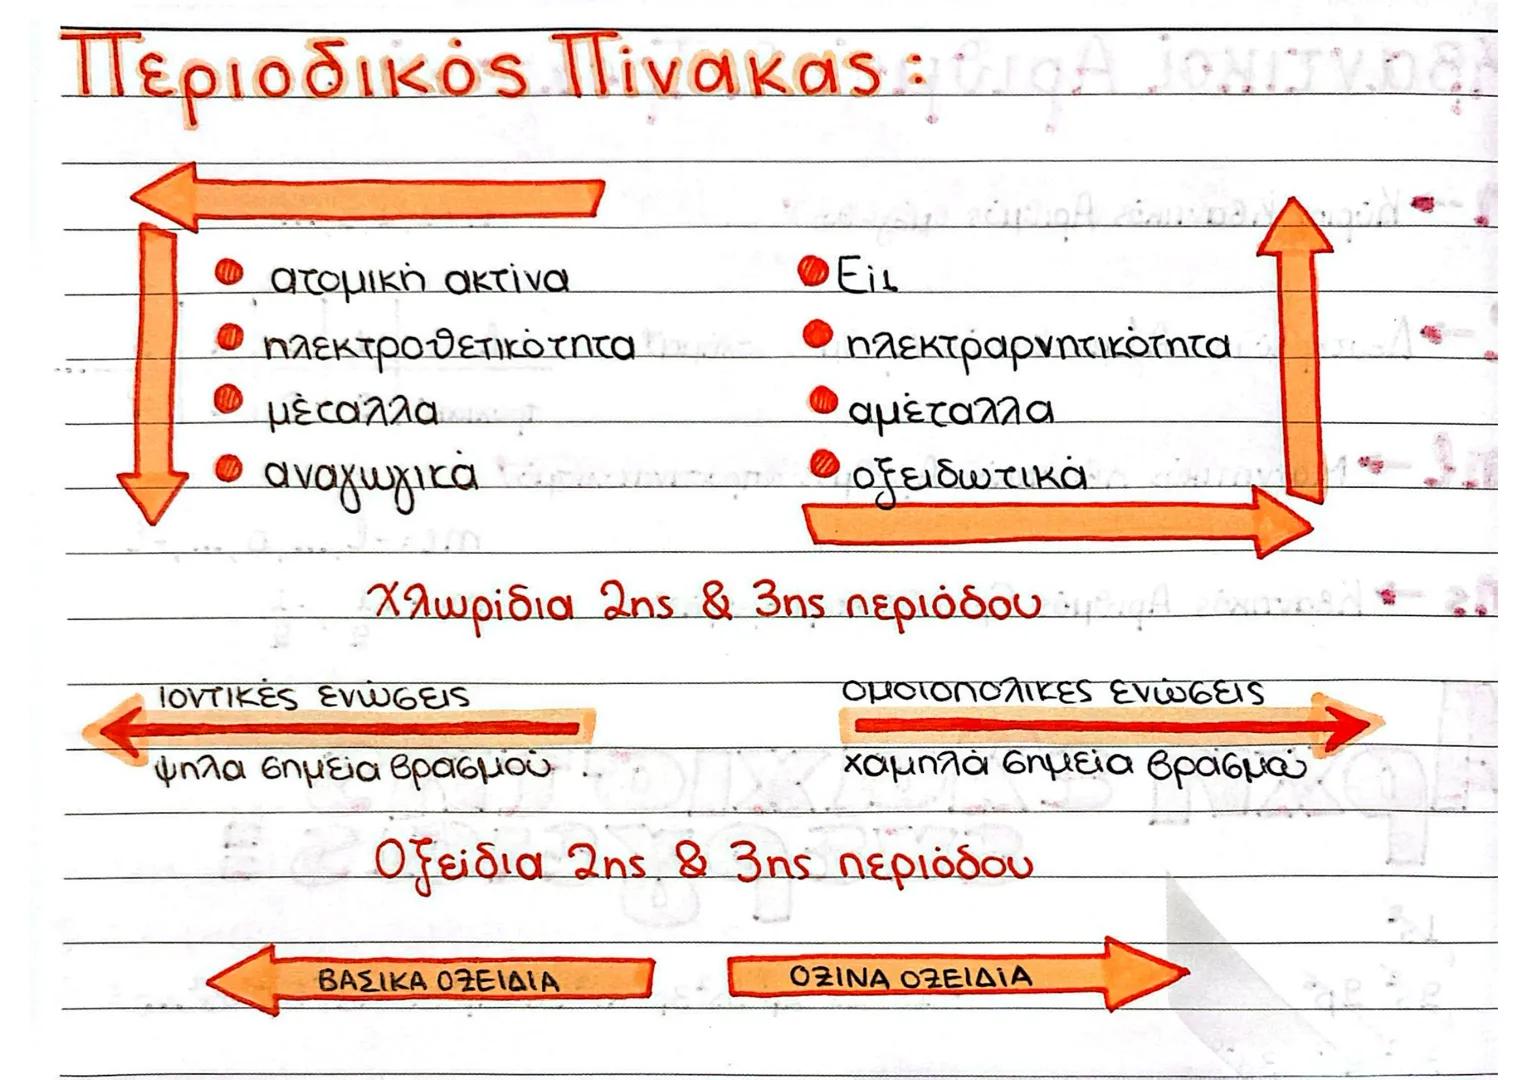 Περιοδικός Πίνακας:
ατομική ακτίνα
ηλεκτροθετικότητα
μέταλλα
αναγωγικά
Ειι
ηλεκτραρνητικότητα
αμέταλλα
οξειδωτικά
Χλωρίδια 2ης & 3ης περιόδου
ιοντικές ενώσεις
ψηλα σημεία βρασμού
ομοιοπολικές ενώσεις
χαμηλά σημεία βρασμού
Οξείδια 2ης & 3ης περιόδου
ΒΑΣΙΚΑ ΟΞΕΙΔΙΑ
ΟΞΙΝΑ ΟΞΕΙΔΙΑ